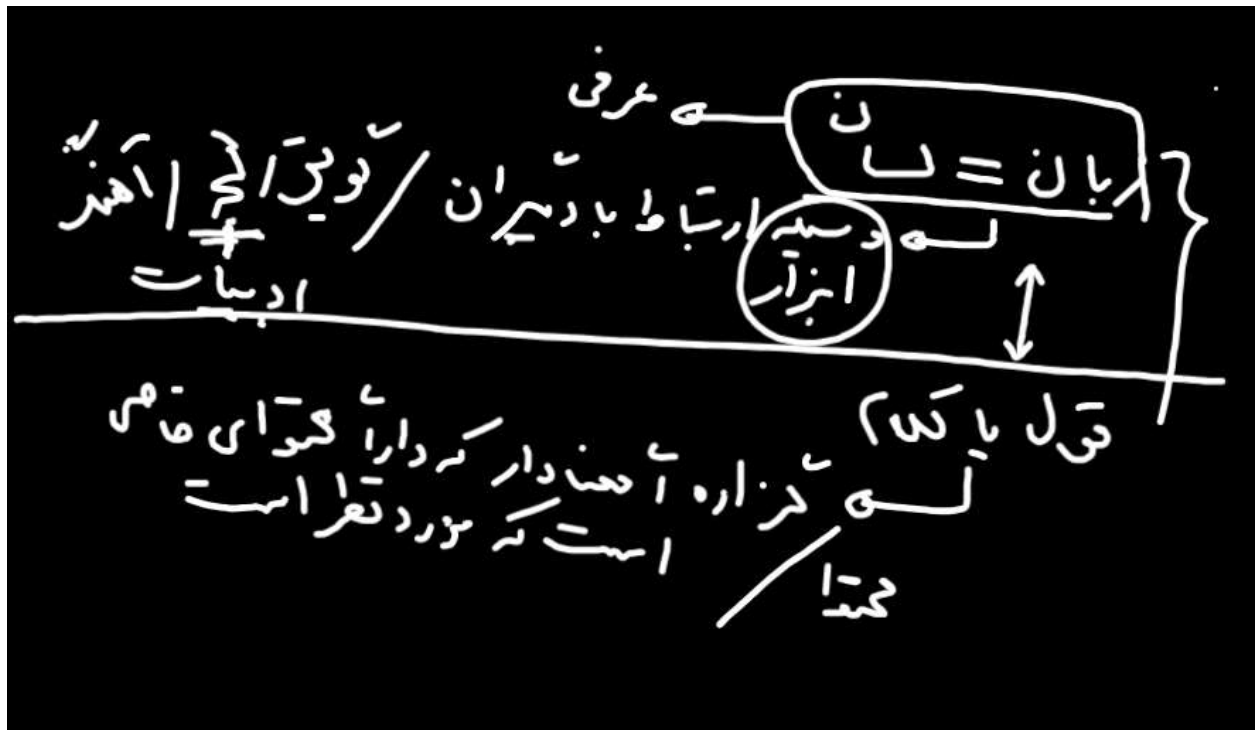 عرفی
زبان = لسان
وسیله ارتباط با دیگران / گویش / لهجه / آهنگ
ابزار
+
ادبیات
قول یا کلام
گزاره معنادار که دارای محتوای خاصی
است که مورد نظر است
محتوا